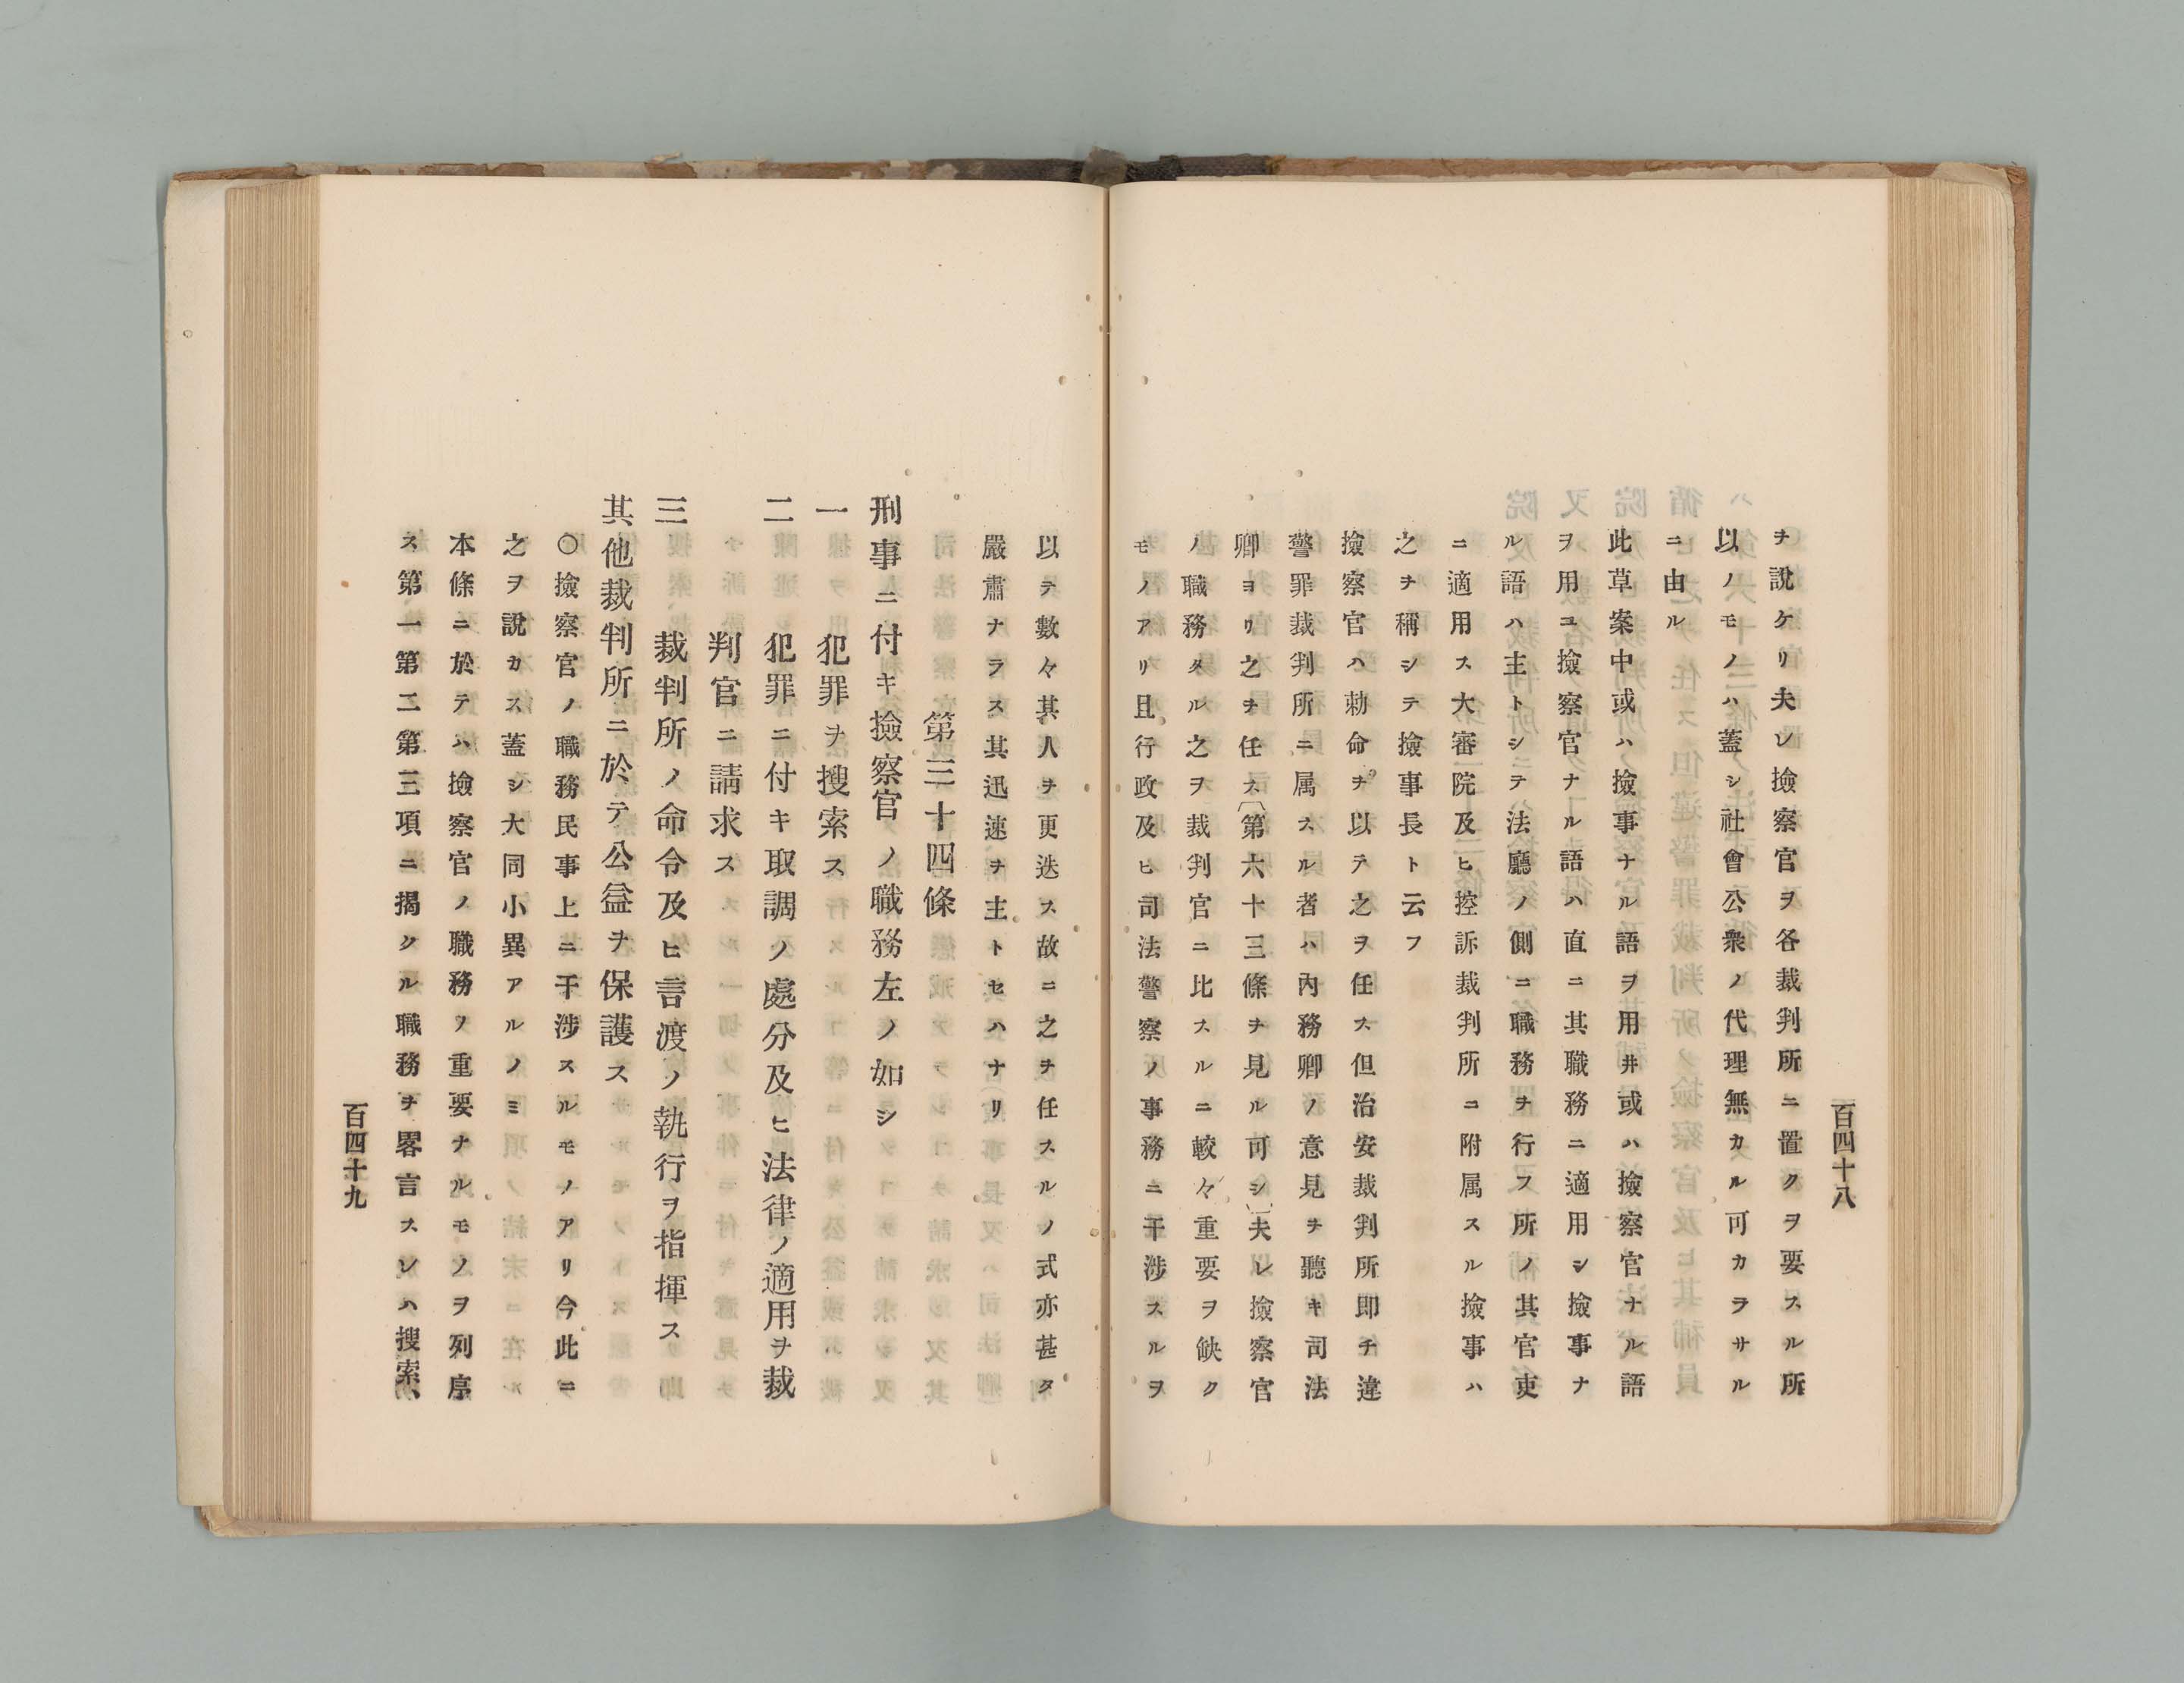 百四十八
ヲ說ケリ夫レ撿察官ヲ各裁判所ニ置クヲ要スル所
以ノモノハ蓋シ社會公衆ノ代理無カル可カラサル
ニ由ル
此草案中或ハ撿事ナル語ヲ用井或ハ撿察官ナル語
ヲ用ユ撿察官ナル語ハ直ニ其職務ニ適用シ撿事ナ
ル語ハ主トシテ法廳ノ側ニ職務ヲ行フ所ノ其官吏
ニ適用ス大審院及ヒ控訴裁判所ニ附属スル撿事ハ
之ヲ稱シテ撿事長ト云フ
撿察官ハ勅命ヲ以テ之ヲ任ス但治安裁判所即チ違
警罪裁判所ニ属スル者ハ內務卿ノ意見ヲ聽キ司法
卿ヨリ之ヲ任ス〔第六十三條ヲ見ル可シ〕夫レ撿察官
ノ職務タル之ヲ裁判官ニ比スルニ較々重要ヲ缺ク
モノアリ且行政及ヒ司法警察ノ事務ニ干涉スルヲ
以テ數々其人ヲ更迭ス故ニ之ヲ任スルノ式亦甚タ
嚴肅ナラス其迅速ヲ主トセハナリ
第三十四條
刑事ニ付キ撿察官ノ職務左ノ如シ
一 犯罪ヲ搜索ス
二 犯罪ニ付キ取調ノ處分及ヒ法律ノ適用ヲ裁
判官ニ請求ス
三 裁判所ノ命令及ヒ言渡ノ執行ヲ指揮ス
其他裁判所ニ於テ公益ヲ保護ス
〇撿察官ノ職務民事上ニ干涉スルモノアリ今此ニ
之ヲ說カス蓋シ大同小異アルノミ
本條ニ於テハ撿察官ノ職務ノ重要ナルモノヲ列序
ス第一第二第三項ニ揭クル職務ヲ畧言スレハ搜索、
百四十九